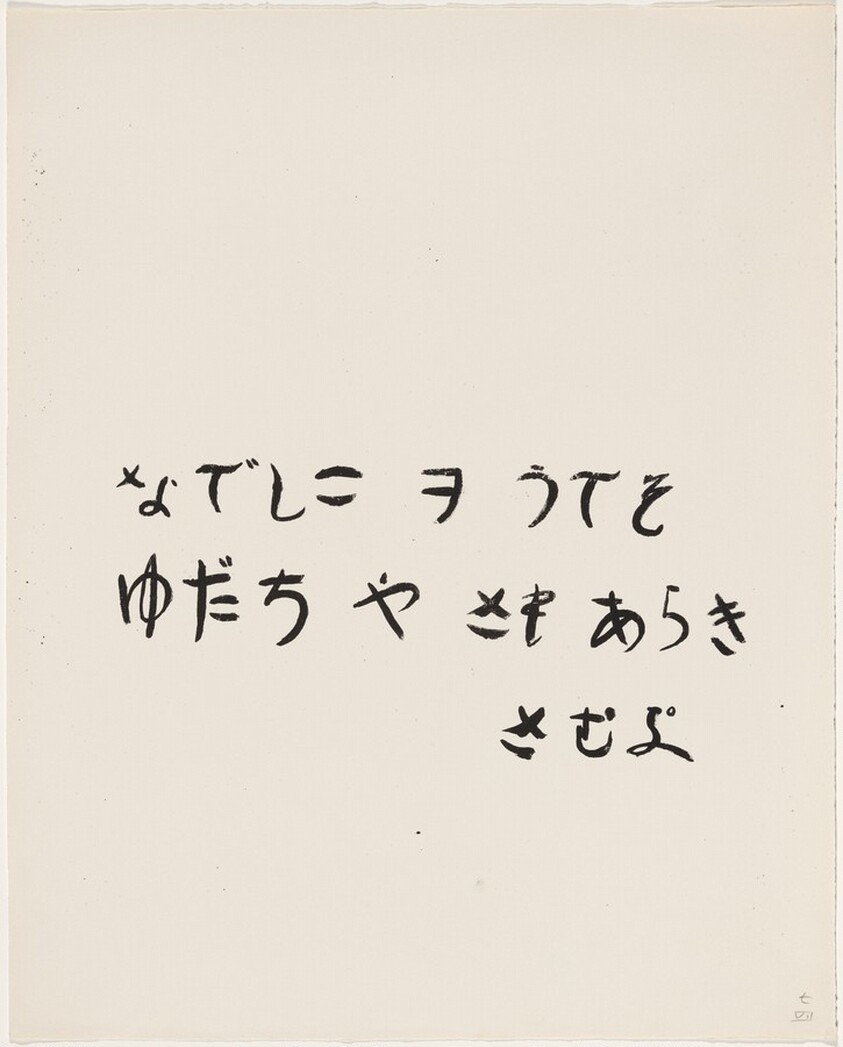 なでしこ ヲ うてそ
ゆだち や さも あらき
さむぷ
VII